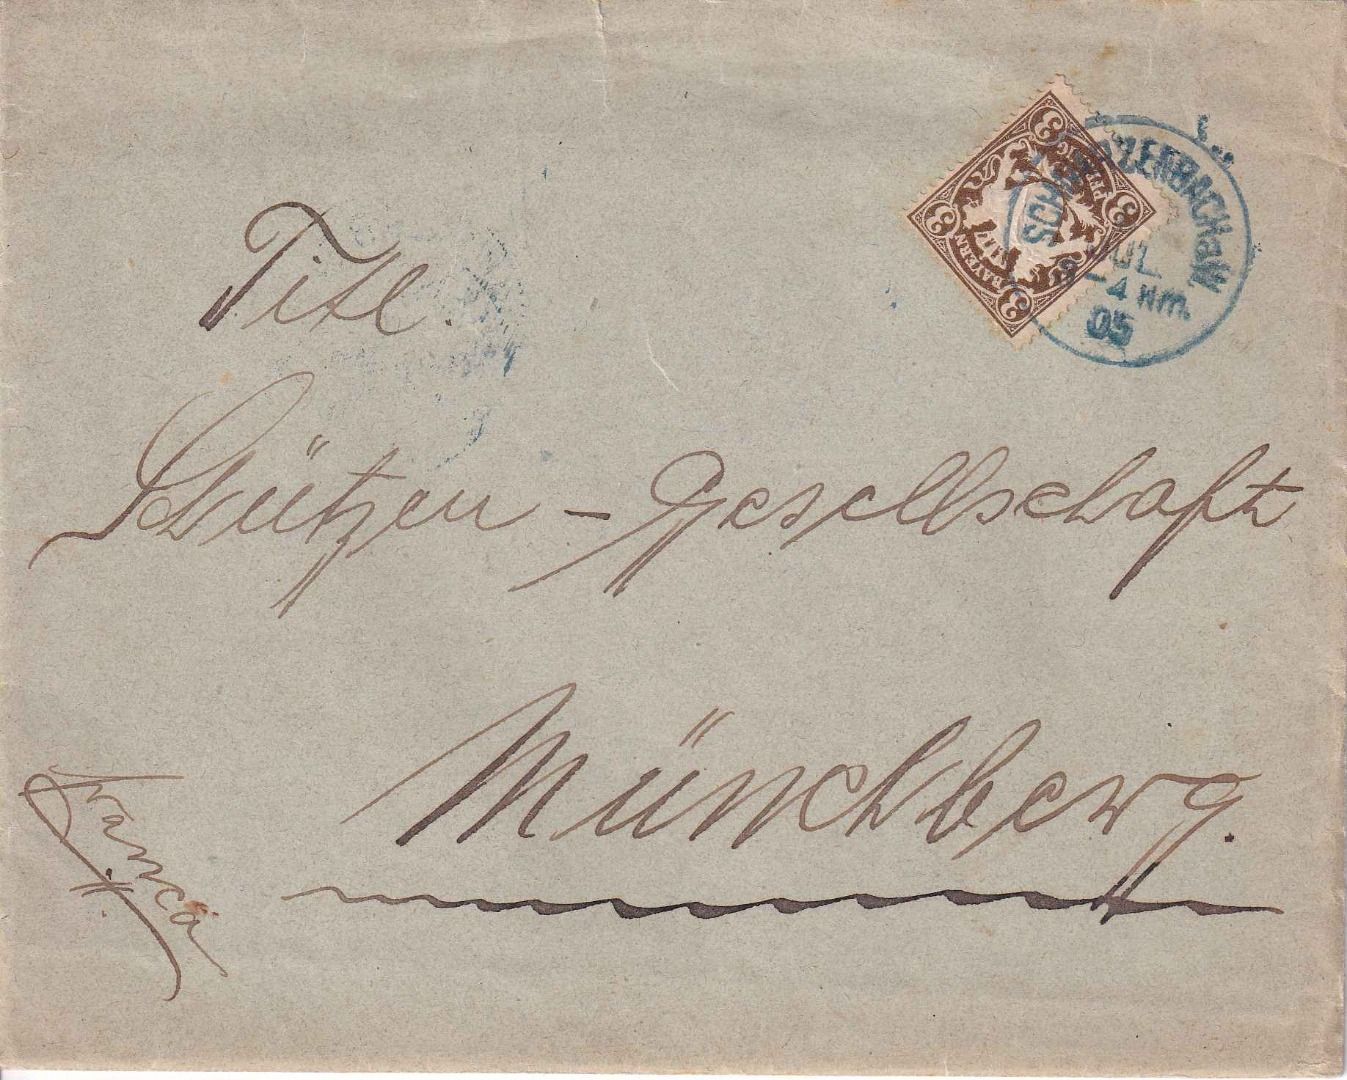 3 3 3 3
BAYERN
PFENNIG
SCHWARZENBACH a/W
JUL.
3-4 Nm.
05
Titl.
Schützen-Gesellschaft
Münchberg.
Franca